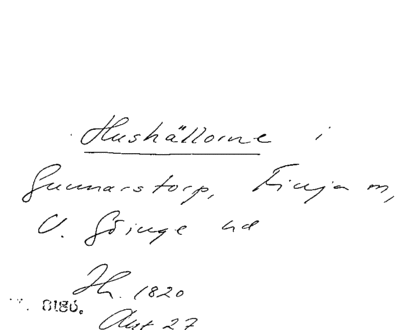 Hushällorne i
Gunnarstorp, Finja m,
V. Göinge hd
Jh. 1820
Aut 27